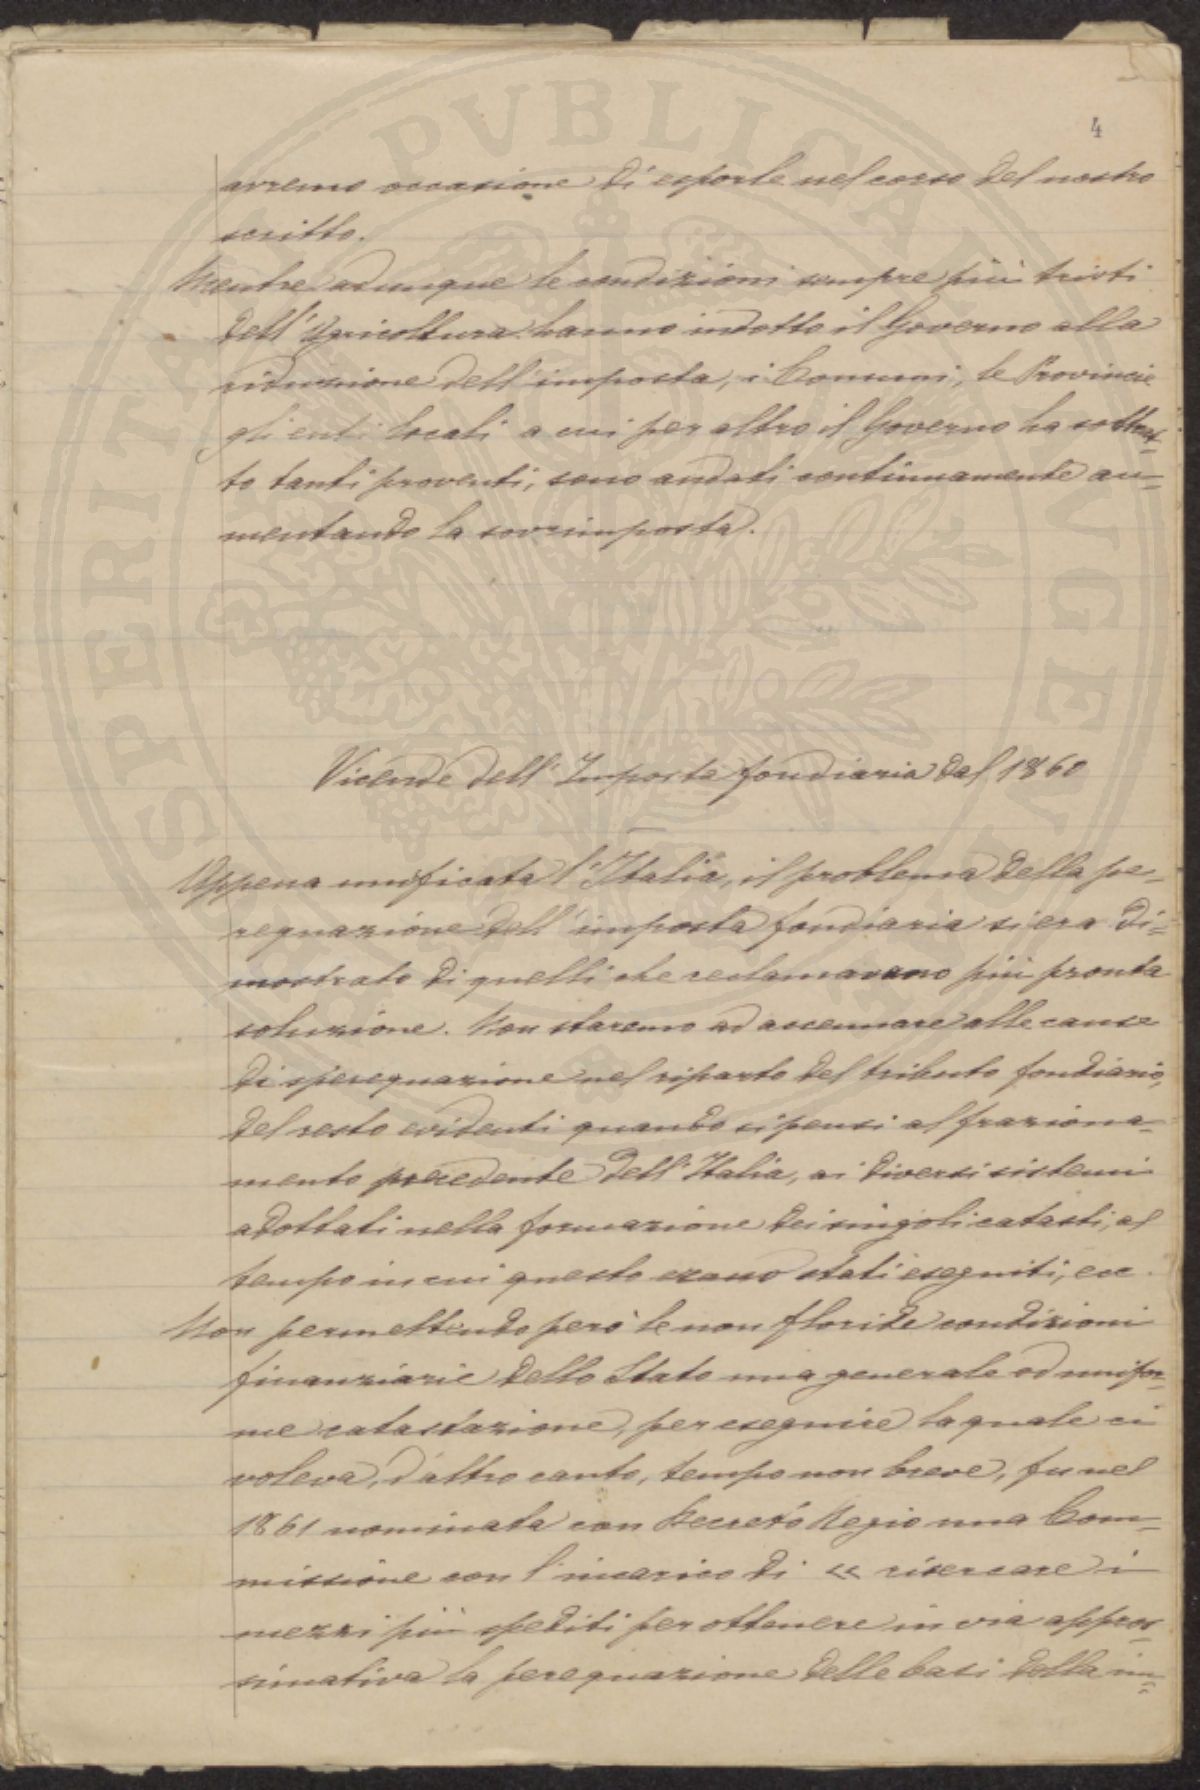 4
avremo occasione di esporle nel corso del nostro
scritto.
Mentre adunque le condizioni sempre più tristi
dell'Agricoltura hanno indotto il Governo alla
riduzione dell'imposta, i Comuni, le Provincie
gli enti locali a cui per altro il Governo ha sottrat-
to tanti proventi, sono andati continuamente au-
mentando la sovrimposta.
Vicende dell'Imposta fondiaria dal 1860
Appena unificata l'Italia, il problema della pe-
requazione dell'imposta fondiaria si era di-
mostrato di quelli che reclamavano più pronta
soluzione. Non staremo ad accennare alle cause
di sperequazione nel riparto del tributo fondiario,
del resto evidenti quando si pensi al fraziona-
mento precedente dell'Italia, ai diversi sistemi
adottati nella formazione dei singoli catasti, al
tempo in cui questo erano stati eseguiti, ecc.
Non permettendo però le non floride condizioni
finanziarie dello Stato una generale ed unifor-
me catastazione, per eseguire la quale ci
voleva, d'altro canto, tempo non breve, fu nel
1861 nominata con Decreto Regio una Com-
missione con l'incarico di « ricercare i
mezzi più spediti per ottenere in via appros-
simativa la perequazione delle basi della im-
PVBLICAE
PROSPERITATI
AVGENDAE